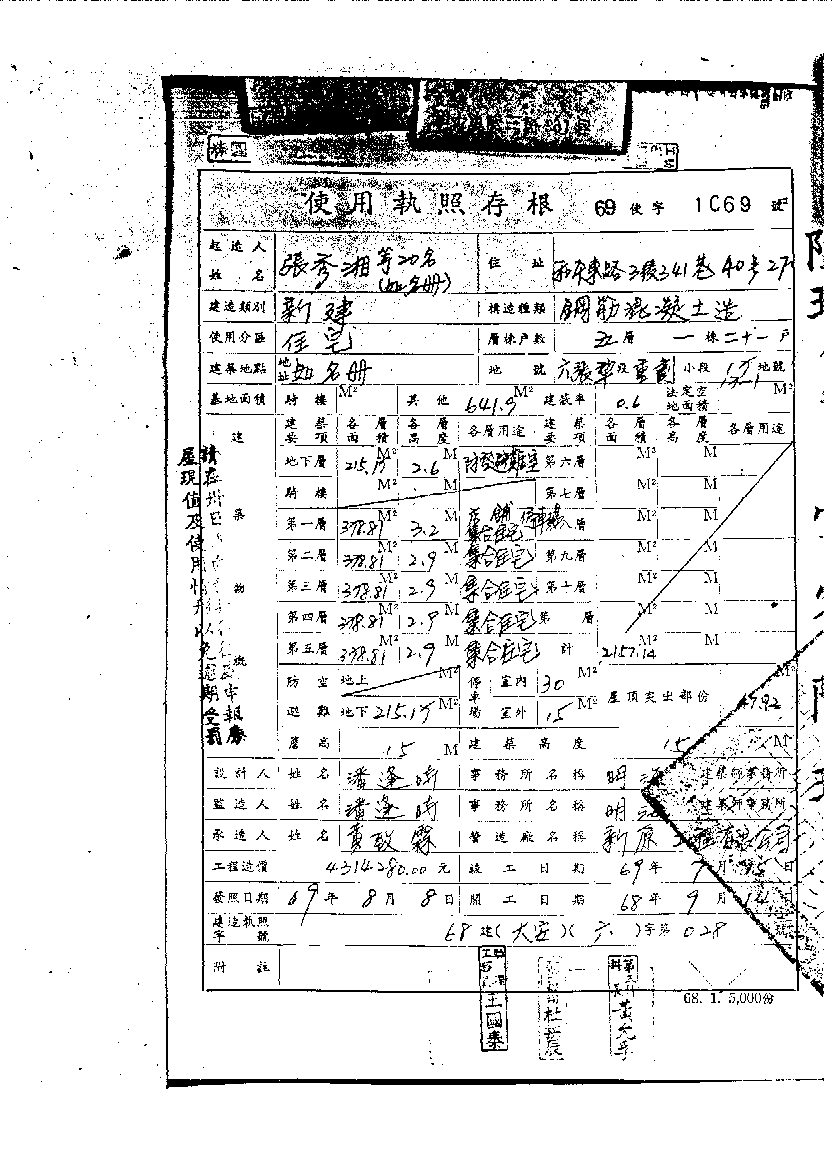 使用執照存根 69 使字 1069 號
起造人姓名 張秀湘等20名(如名冊) 住址 和平東路3段341巷40号2F
建造類別 新建 構造種類 鋼筋混凝土造
使用分區 住宅 層棟戶數 五層 一棟二十一戶
建築地點 地址 如名冊 地號 小段 地號
基地面積 騎樓 M² 其他 641.9 M² 建蔽率 0.6 法定空地面積 M²
建築物概要 建築要項 各層面積 各層高度 各層用途 建築要項 各層面積 各層高度 各層用途
地下層 215.17 M² 2.6 M 防空避難室 第六層 M² M
騎樓 M² M 第七層 M² M
第一層 378.81 M² 3.2 M 店舖 停車場 集合住宅 層 M² M
第二層 378.81 M² 2.9 M 集合住宅 第九層 M² M
第三層 378.81 M² 2.9 M 集合住宅 第十層 M² M
第四層 378.81 M² 2.9 M 集合住宅 第 層 M² M
第五層 378.81 M² 2.9 M 集合住宅 計 2157.14 M² M
防空避難 地上 M² 停車場 室內 30 M² 屋頂突出部份 47.92 M²
地下 215.17 M² 室外 15 M²
簷高 15 M 建築高度 15 M
設計人 姓名 潘逢時 事務所名稱 明 建築師事務所
監造人 姓名 潘逢時 事務所名稱 明 建築師事務所
承造人 姓名 黃政霖 營造廠名稱 新原工程有限公司
工程造價 4314280.00元 竣工日期 69年7月15日
發照日期 69年8月8日 開工日期 68年9月14日
建造執照字號 68建(大安)(六)字第028號
附註
68. 1. 5,000份
王國泰
黃允平